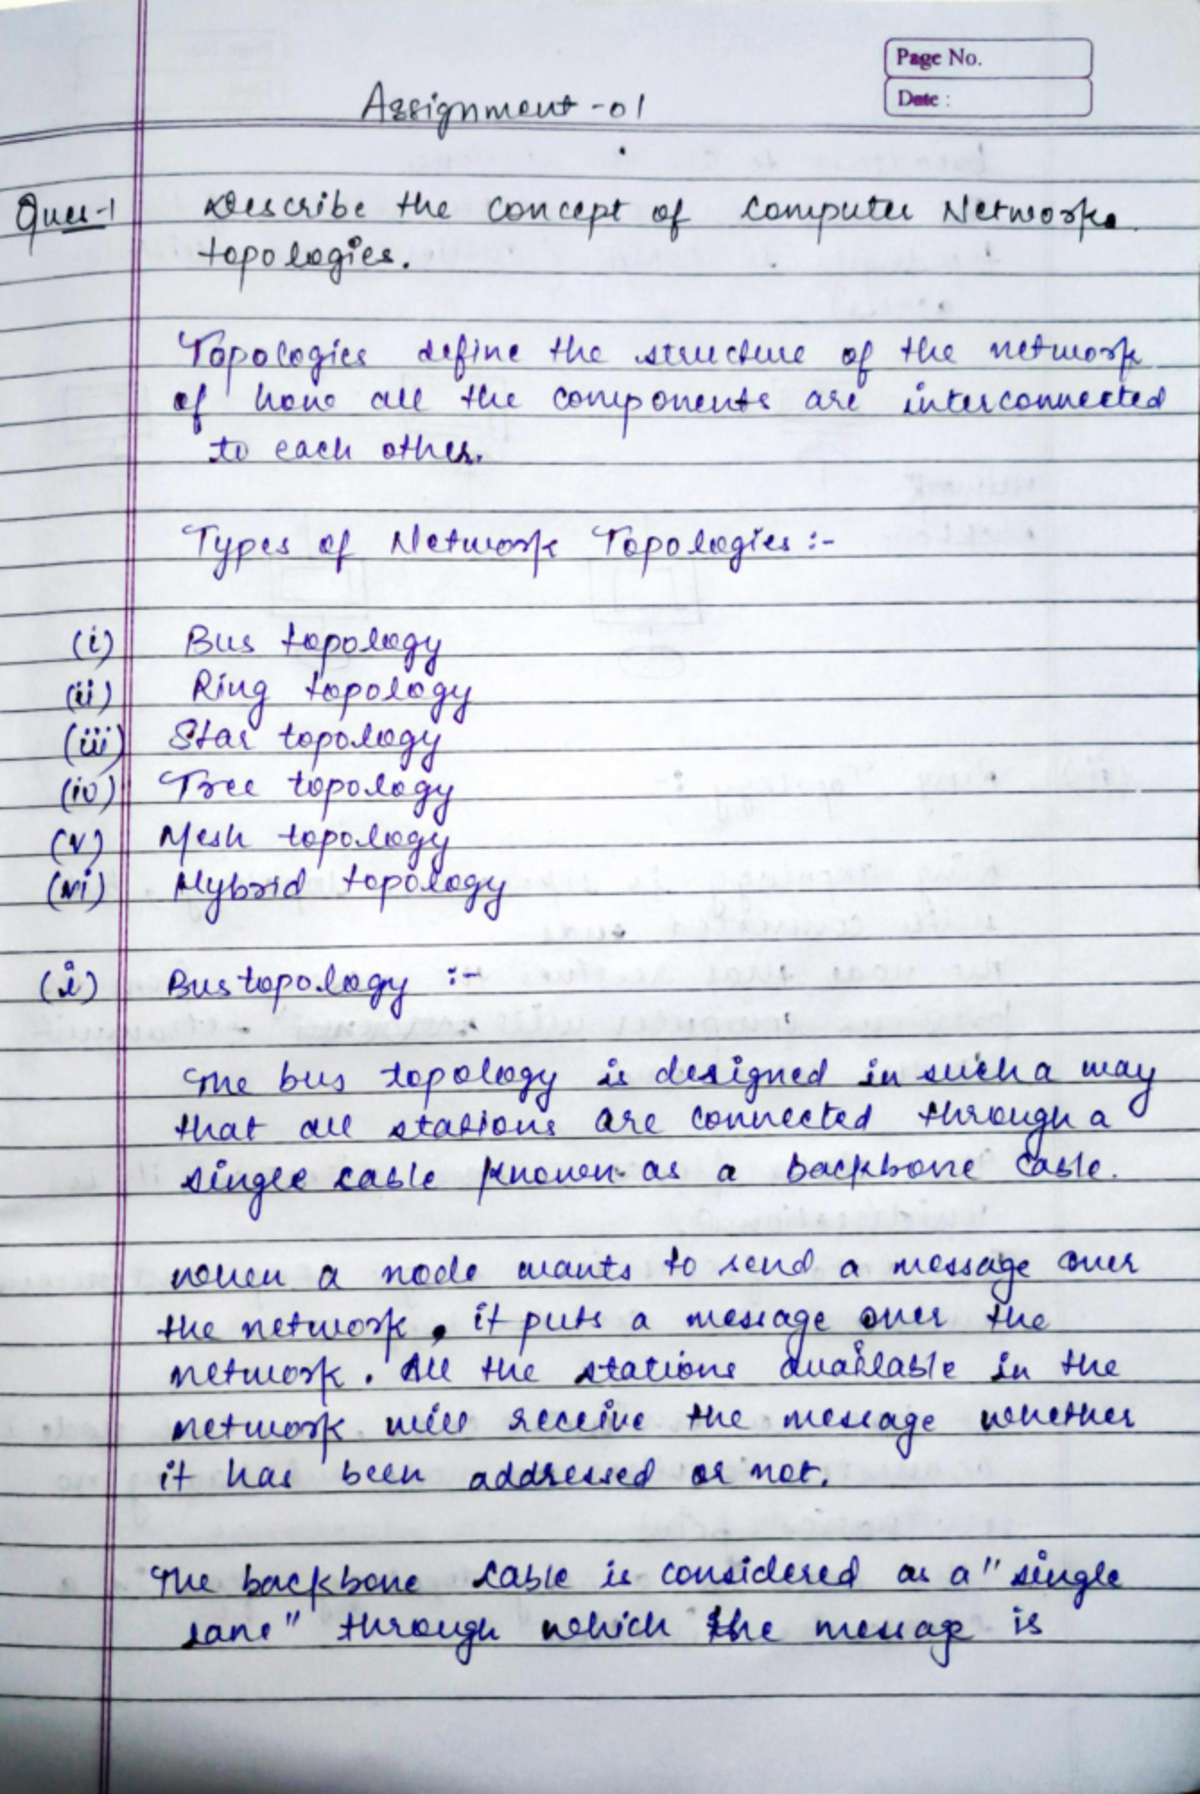 Page No.
Date :
Assignment - 01
Ques-1 Describe the concept of Computer Network
topologies.
Topologies define the structure of the network
of how all the components are interconnected
to each other.
Types of Network Topologies :-
(i) Bus topology
(ii) Ring topology
(iii) Star topology
(iv) Tree topology
(v) Mesh topology
(vi) Hybrid topology
(i) Bus topology :-
The bus topology is designed in such a way
that all stations are connected through a
single cable known as a backbone cable.
when a node wants to send a message over
the network, it puts a message over the
network. All the stations available in the
network will receive the message whether
it has been addressed or not.
The backbone cable is considered as a "single
lane" through which the message is